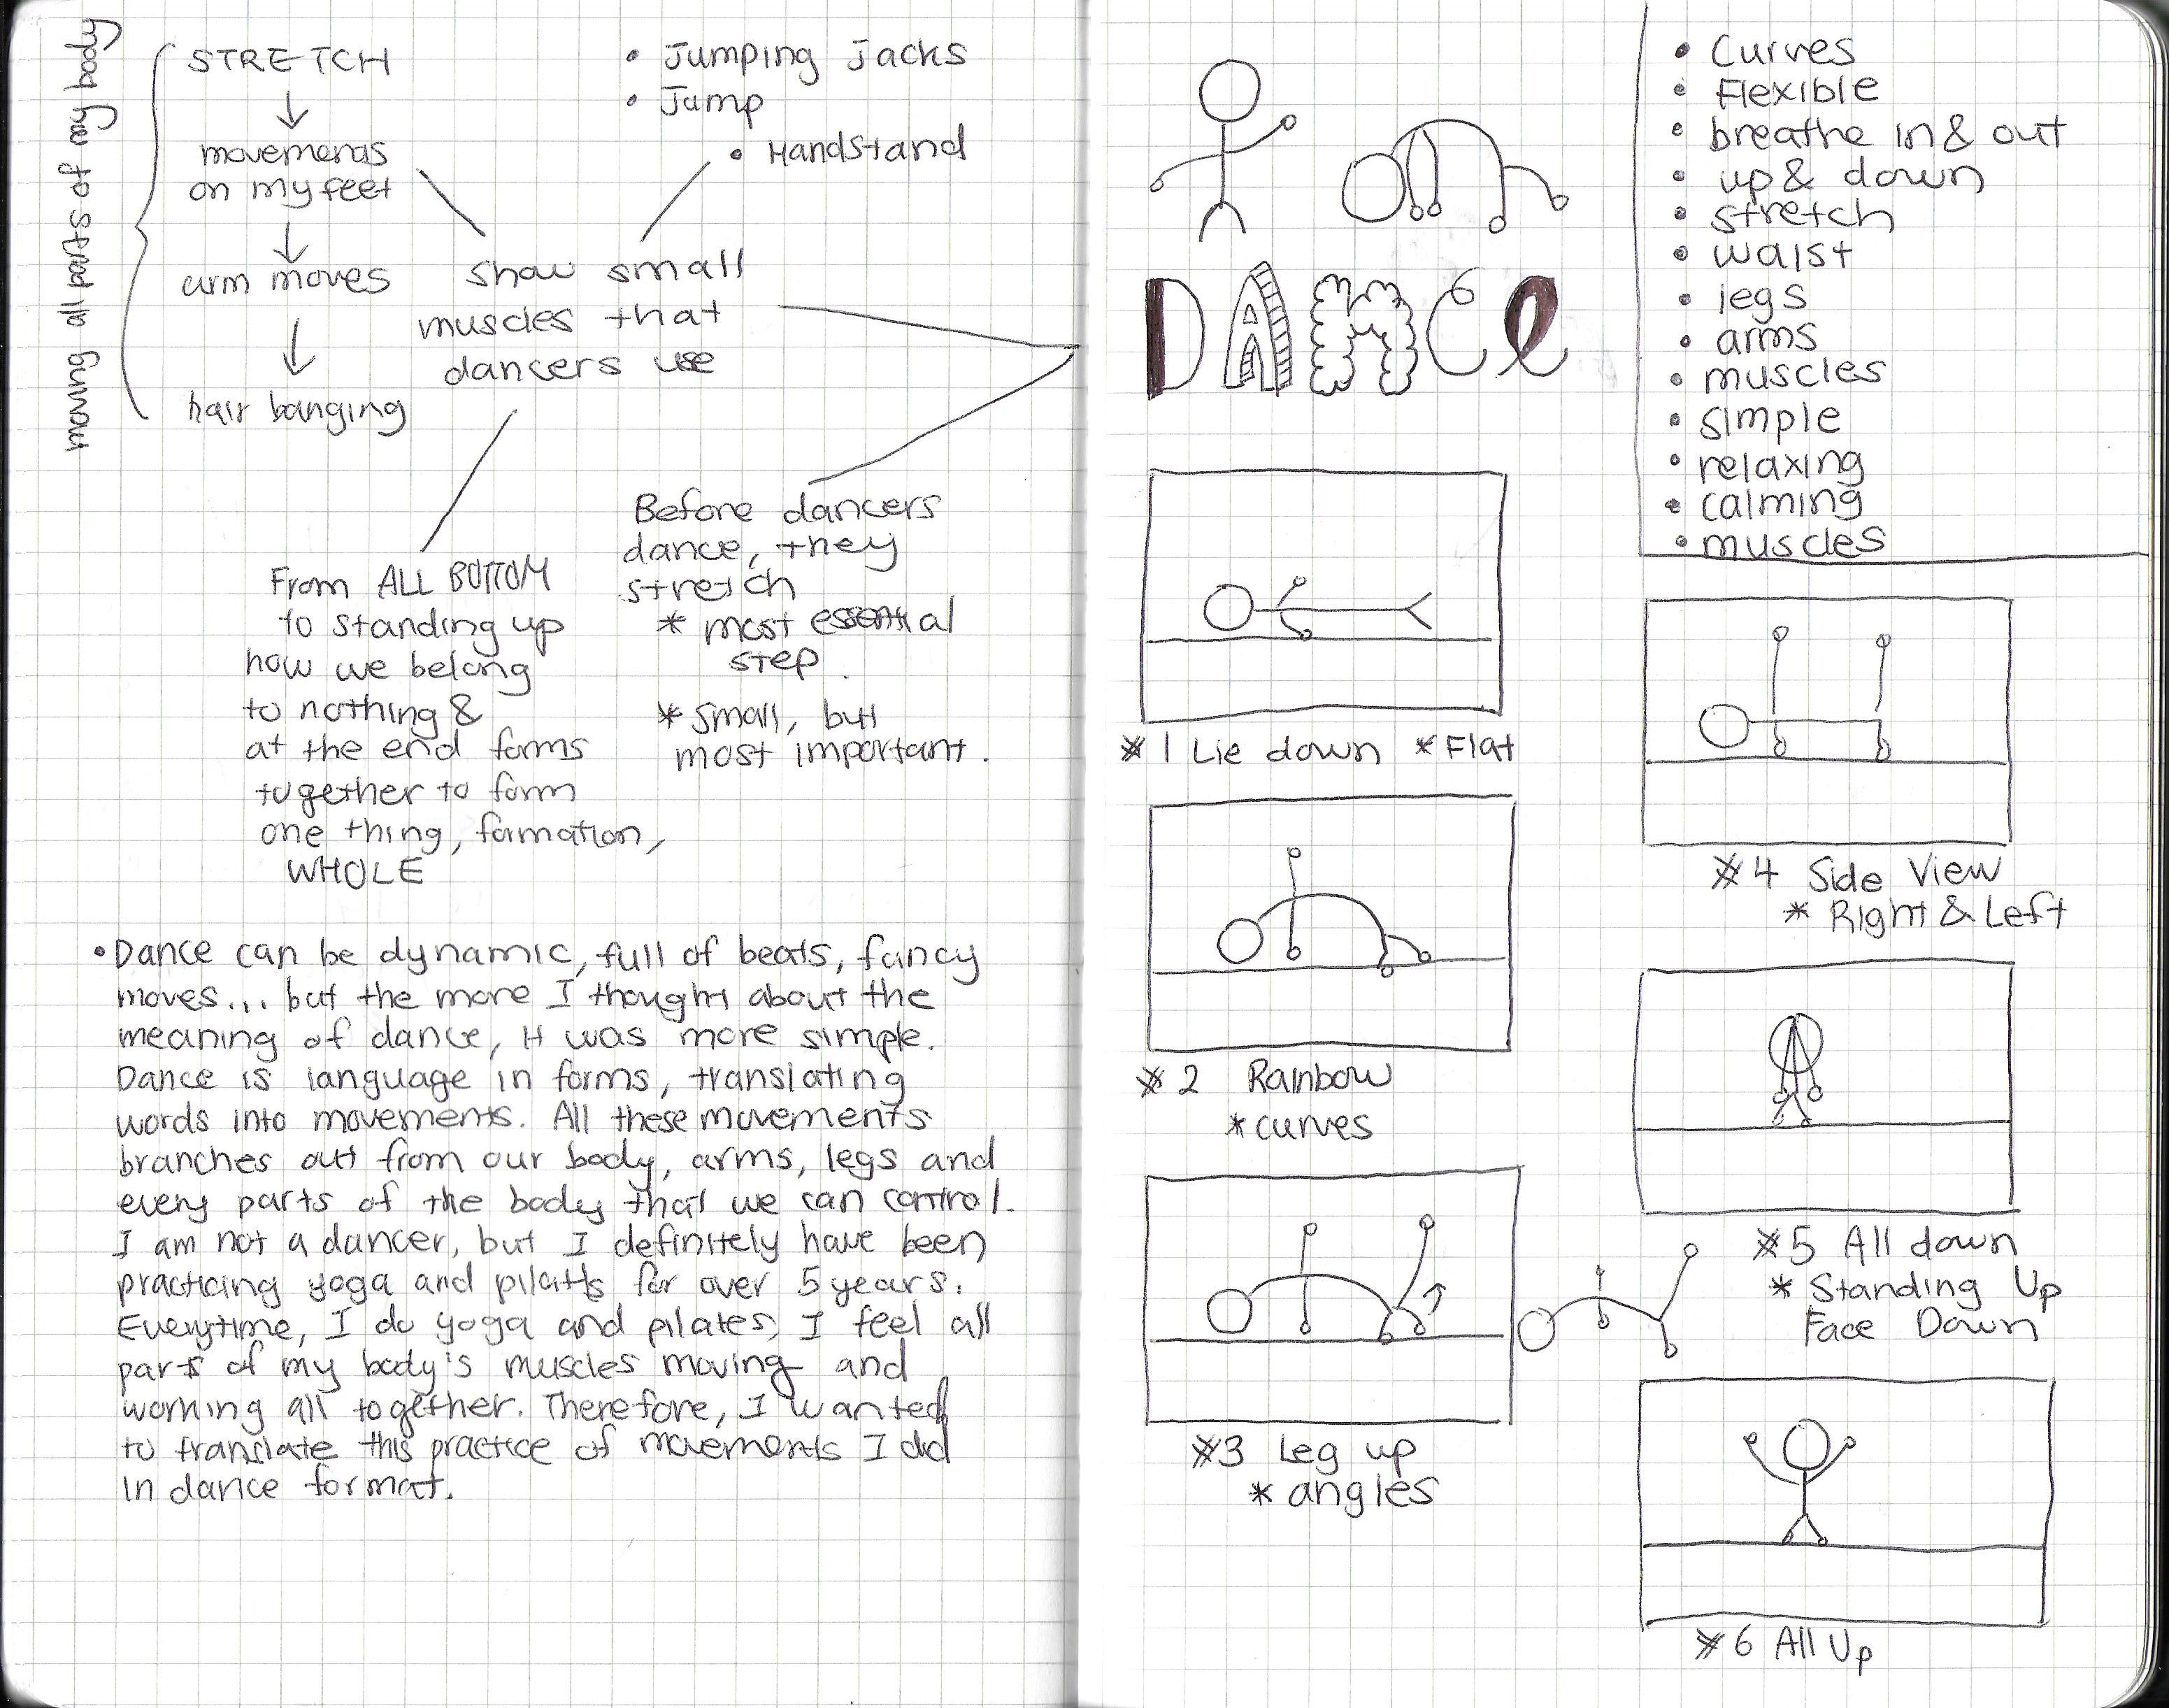 moving all parts of my body
STRETCH
movements
on my feet
arm moves
hair banging
• Jumping jacks
• Jump
• Handstand
show small
muscles that
dancers use
From ALL BOTTOM
to standing up
how we belong
to nothing &
at the end forms
together to form
one thing, formation,
WHOLE
Before dancers
dance, they
stretch
* most essential
step.
* small, but
most important.
• Dance can be dynamic, full of beats, fancy
moves... but the more I thought about the
meaning of dance, it was more simple.
Dance is language in forms, translating
words into movements. All these movements
branches out from our body, arms, legs and
every parts of the body that we can control.
I am not a dancer, but I definitely have been
practicing yoga and pilates for over 5 years.
Everytime, I do yoga and pilates, I feel all
parts of my body's muscles moving and
working all together. Therefore, I wanted
to translate this practice of movements I did
in dance format.
DANCe
• Curves
• Flexible
• breathe in & out
• up & down
• stretch
• waist
• legs
• arms
• muscles
• simple
• relaxing
• calming
• muscles
#1 Lie down *Flat
#2 Rainbow
* curves
#3 Leg up
* angles
#4 Side View
* Right & Left
#5 All down
* Standing Up
Face Down
#6 All Up